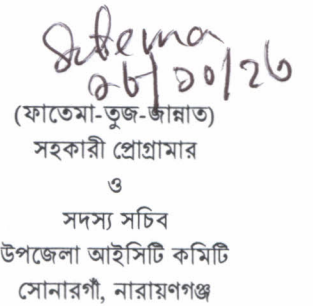 Fatema
২৮/১০/২৬
(ফাতেমা-তুজ-জান্নাত)
সহকারী প্রোগ্রামার
ও
সদস্য সচিব
উপজেলা আইসিটি কমিটি
সোনারগাঁ, নারায়ণগঞ্জ